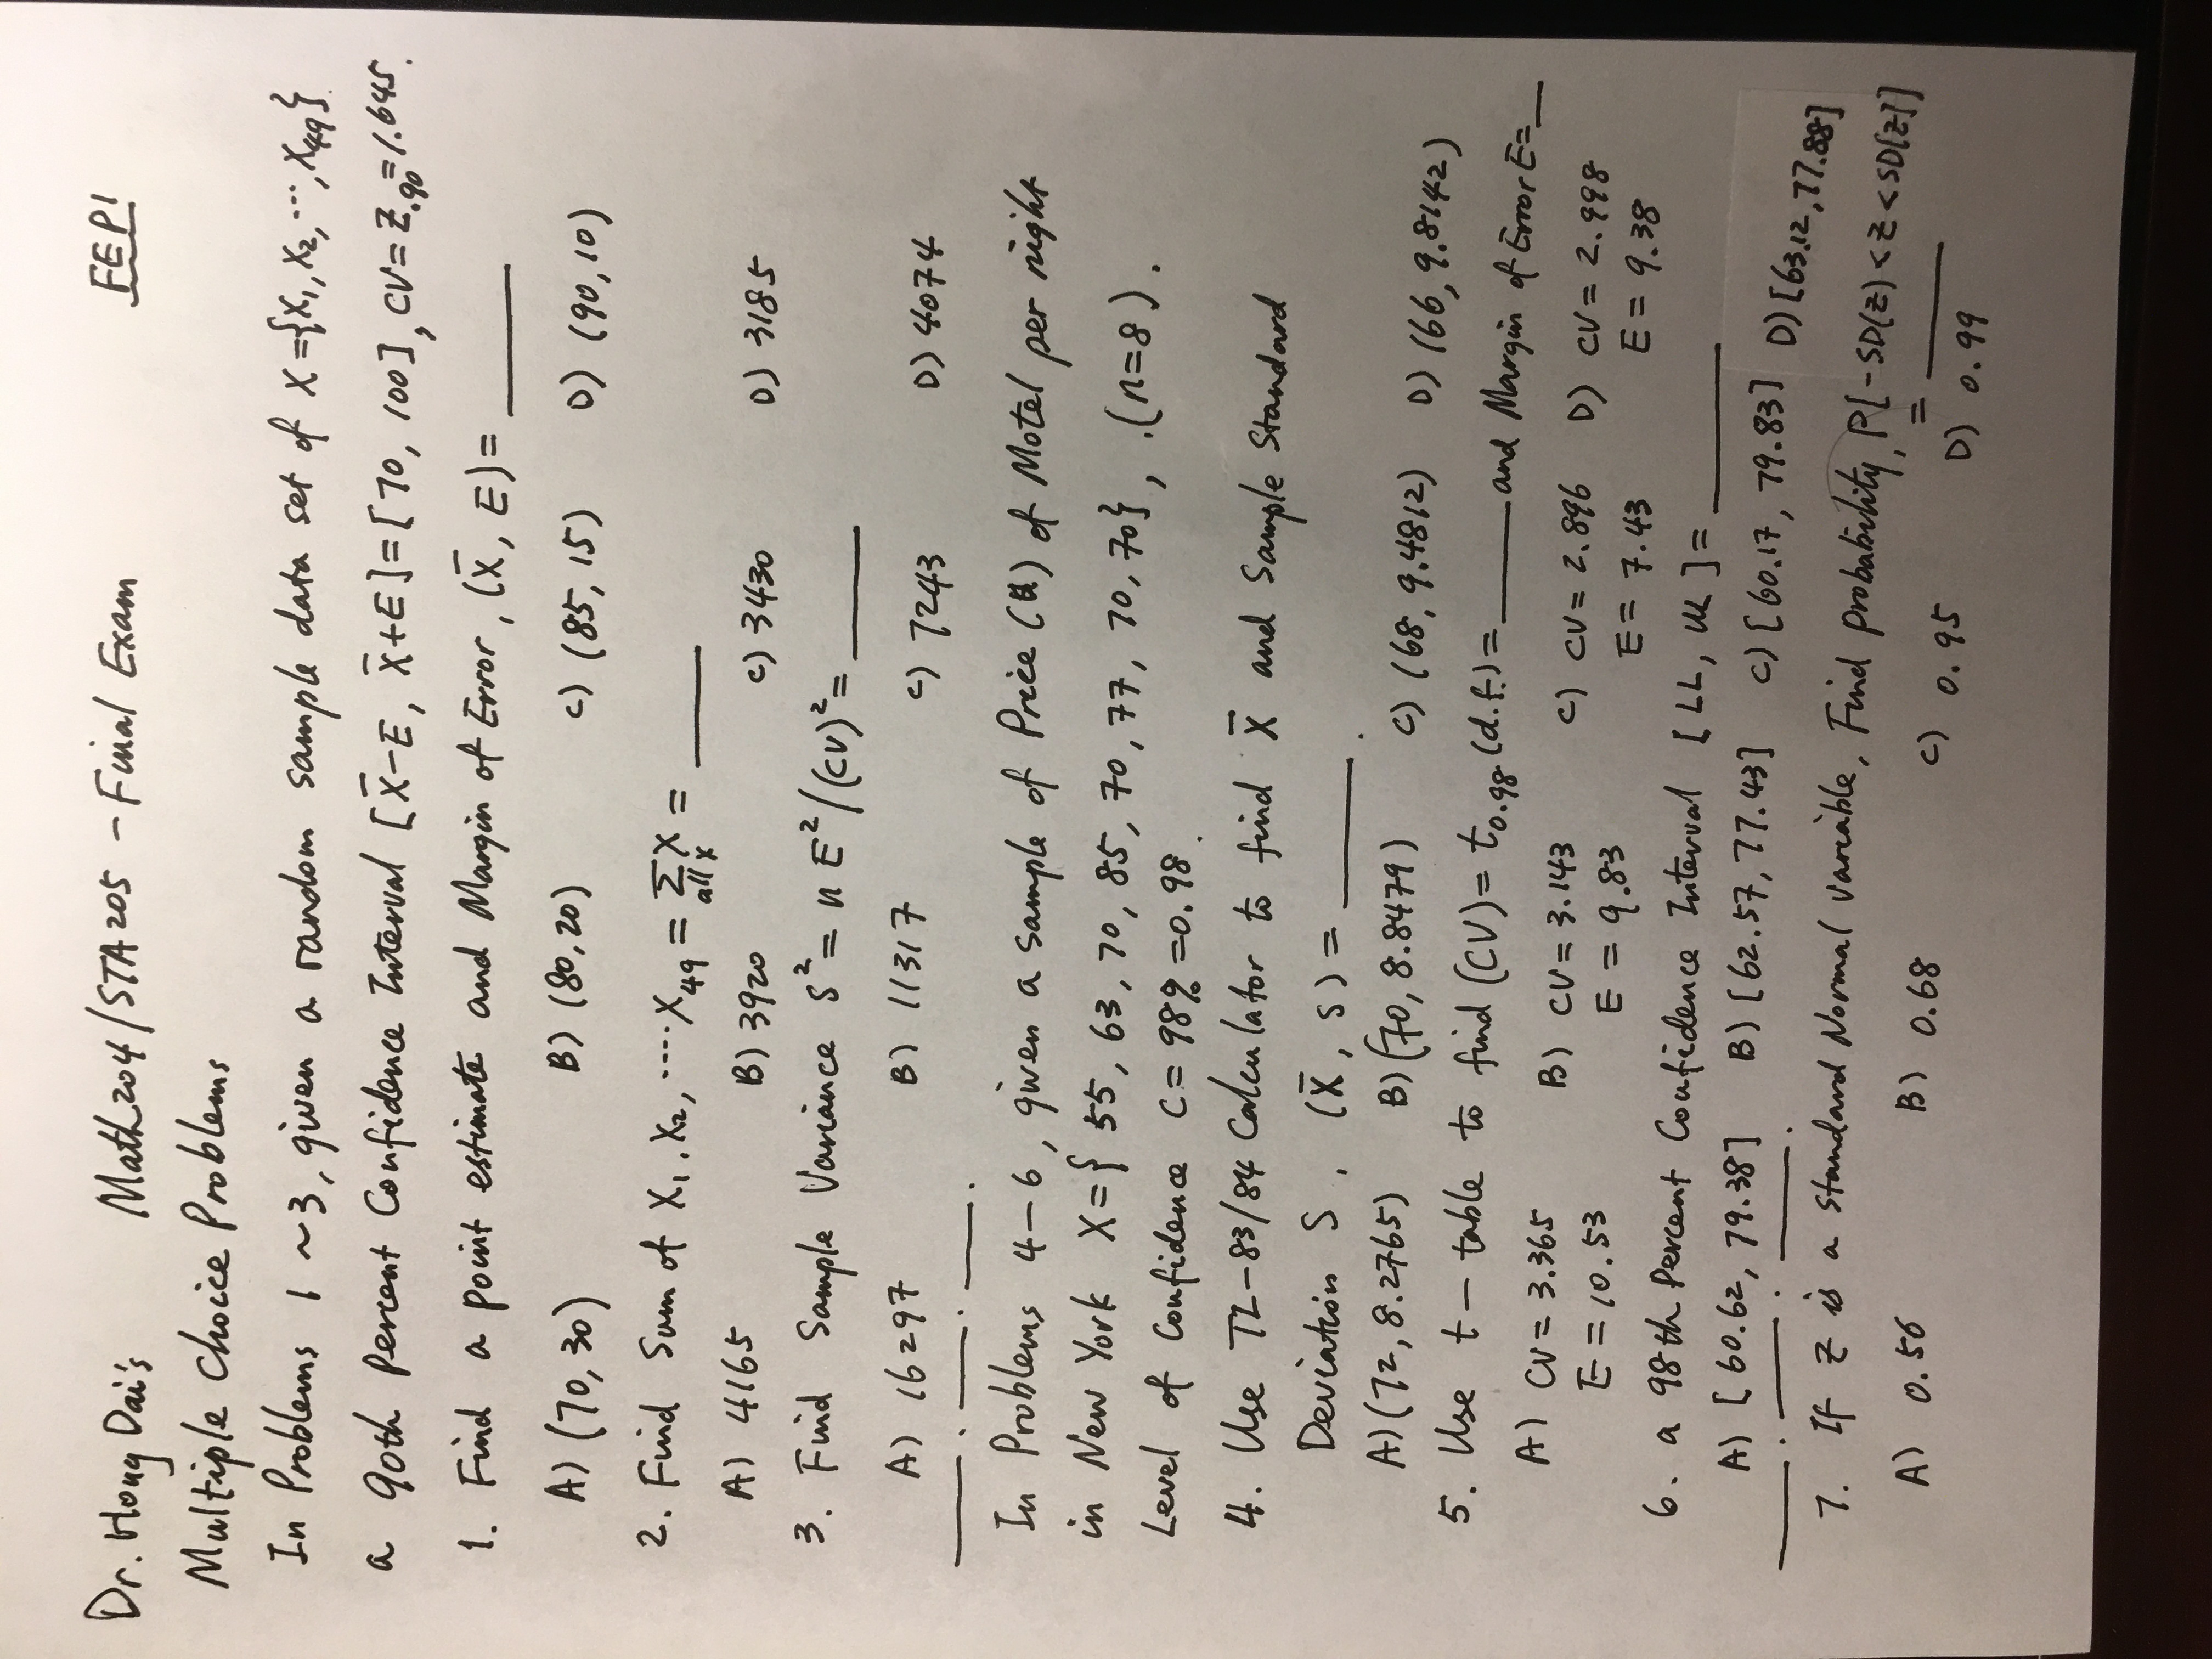 Dr. Hong Dai's Math204/STA205 - Final Exam FEP1
Multiple Choice Problems
In Problems 1 ~ 3, given a random sample data set of X={X₁, X₂, ..., X₄₉}
a 90th Percent Confidence Interval [X̄-E, X̄+E]=[70, 100], CV= Z.₉₀=1.645.
1. Find a point estimate and Margin of Error, (X̄, E)= ____
A) (70, 30) B) (80, 20) C) (85, 15) D) (90, 10)
2. Find Sum of X₁, X₂, .... X₄₉ = Σ X = ____
all x
A) 4165 B) 3920 C) 3430 D) 3185
3. Find Sample Variance S² = n E²/(CV)² = ____
A) 16297 B) 11317 C) 7243 D) 4074
In Problems 4-6, given a sample of Price ( ) of Motel per night
in New York X={55, 63, 70, 85, 70, 77, 70, 70}, .(n=8).
Level of Confidence C= 98% =0.98.
4. Use TI-83/84 Calculator to find X̄ and Sample Standard
Deviation S. (X̄, S) = ____.
A) (72, 8.2765) B) (70, 8.8479) C) (68, 9.4812) D) (66, 9.8142)
5. Use t-table to find (CV)= t₀.₉₈(d.f.)= ____ and Margin of Error E= __
A) CV= 3.365 B) CV= 3.143 C) CV= 2.896 D) CV= 2.998
E = 10.53 E = 9.83 E = 7.43 E = 9.38
6. a 98th Percent Confidence Interval [LL, UL]= ____
A) [60.62, 79.38] B) [62.57, 77.43] C) [60.17, 79.83] D) [63.12, 77.88]
7. If Z is a Standard Normal Variable, Find Probability, P[-SD(Z) < Z < SD(Z)]
= ____
A) 0.56 B) 0.68 C) 0.95 D) 0.99